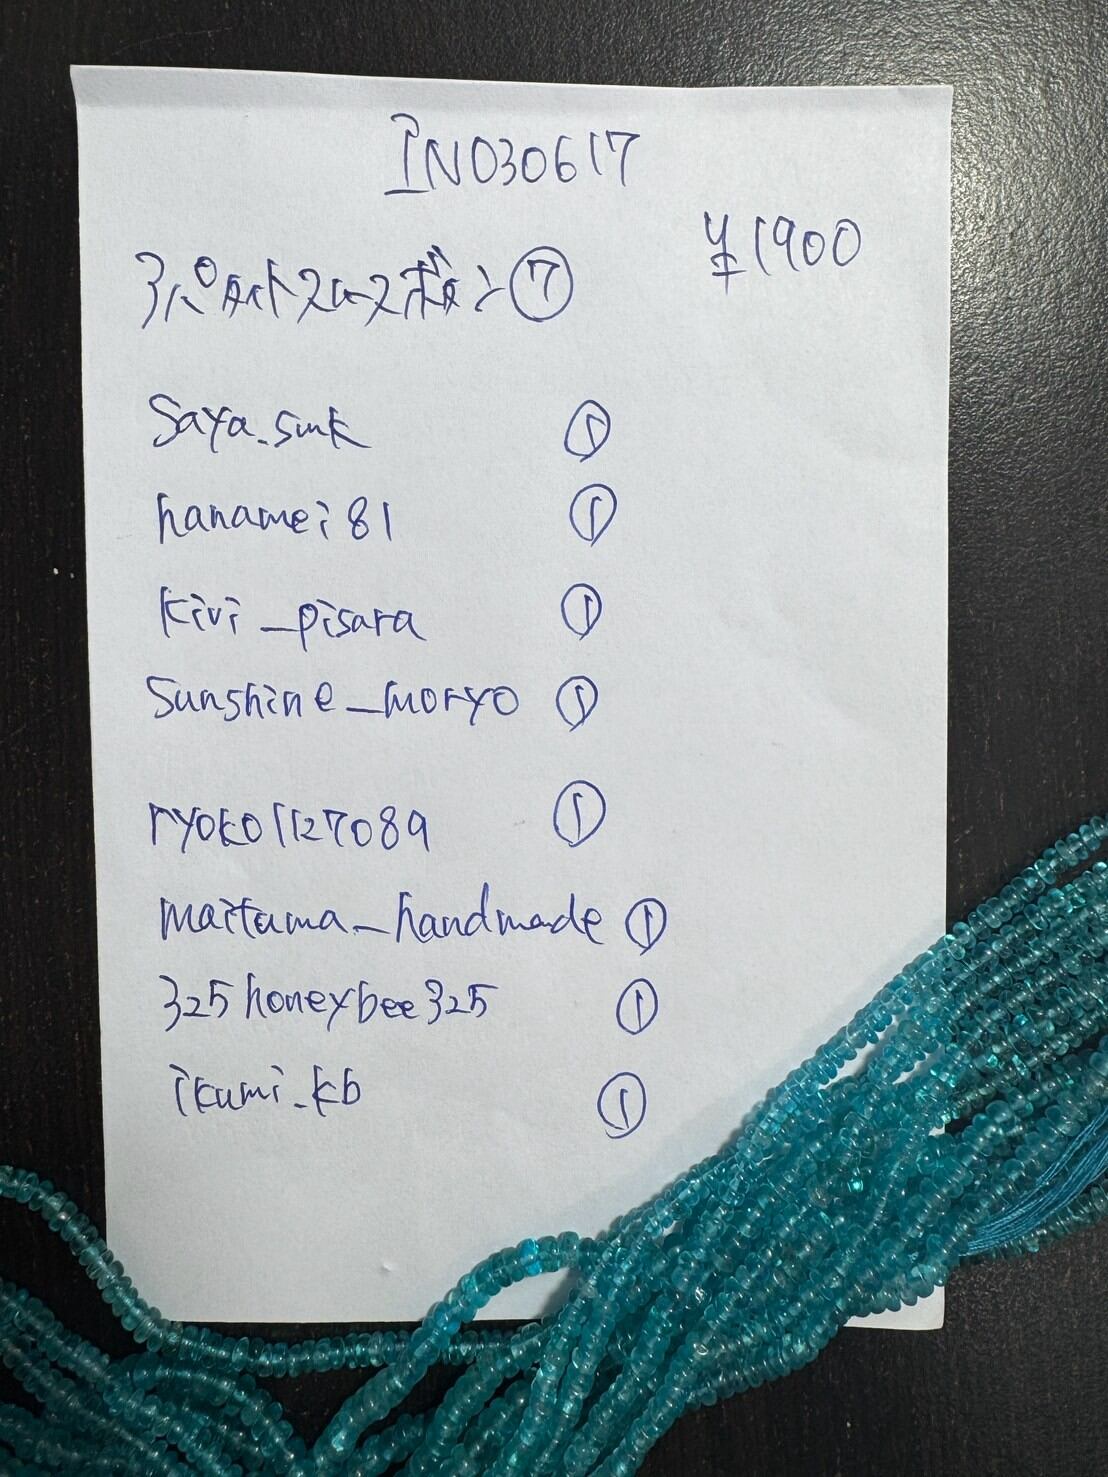 IN030617
¥1900
アパタイトスムースボタン⑦
Saya.smk ①
hanamei81 ①
kivi_pisara ①
Sunshine_moryo ①
ryoko1127089 ①
maituma_handmade ①
325honeybee325 ①
ikumi.kb ①